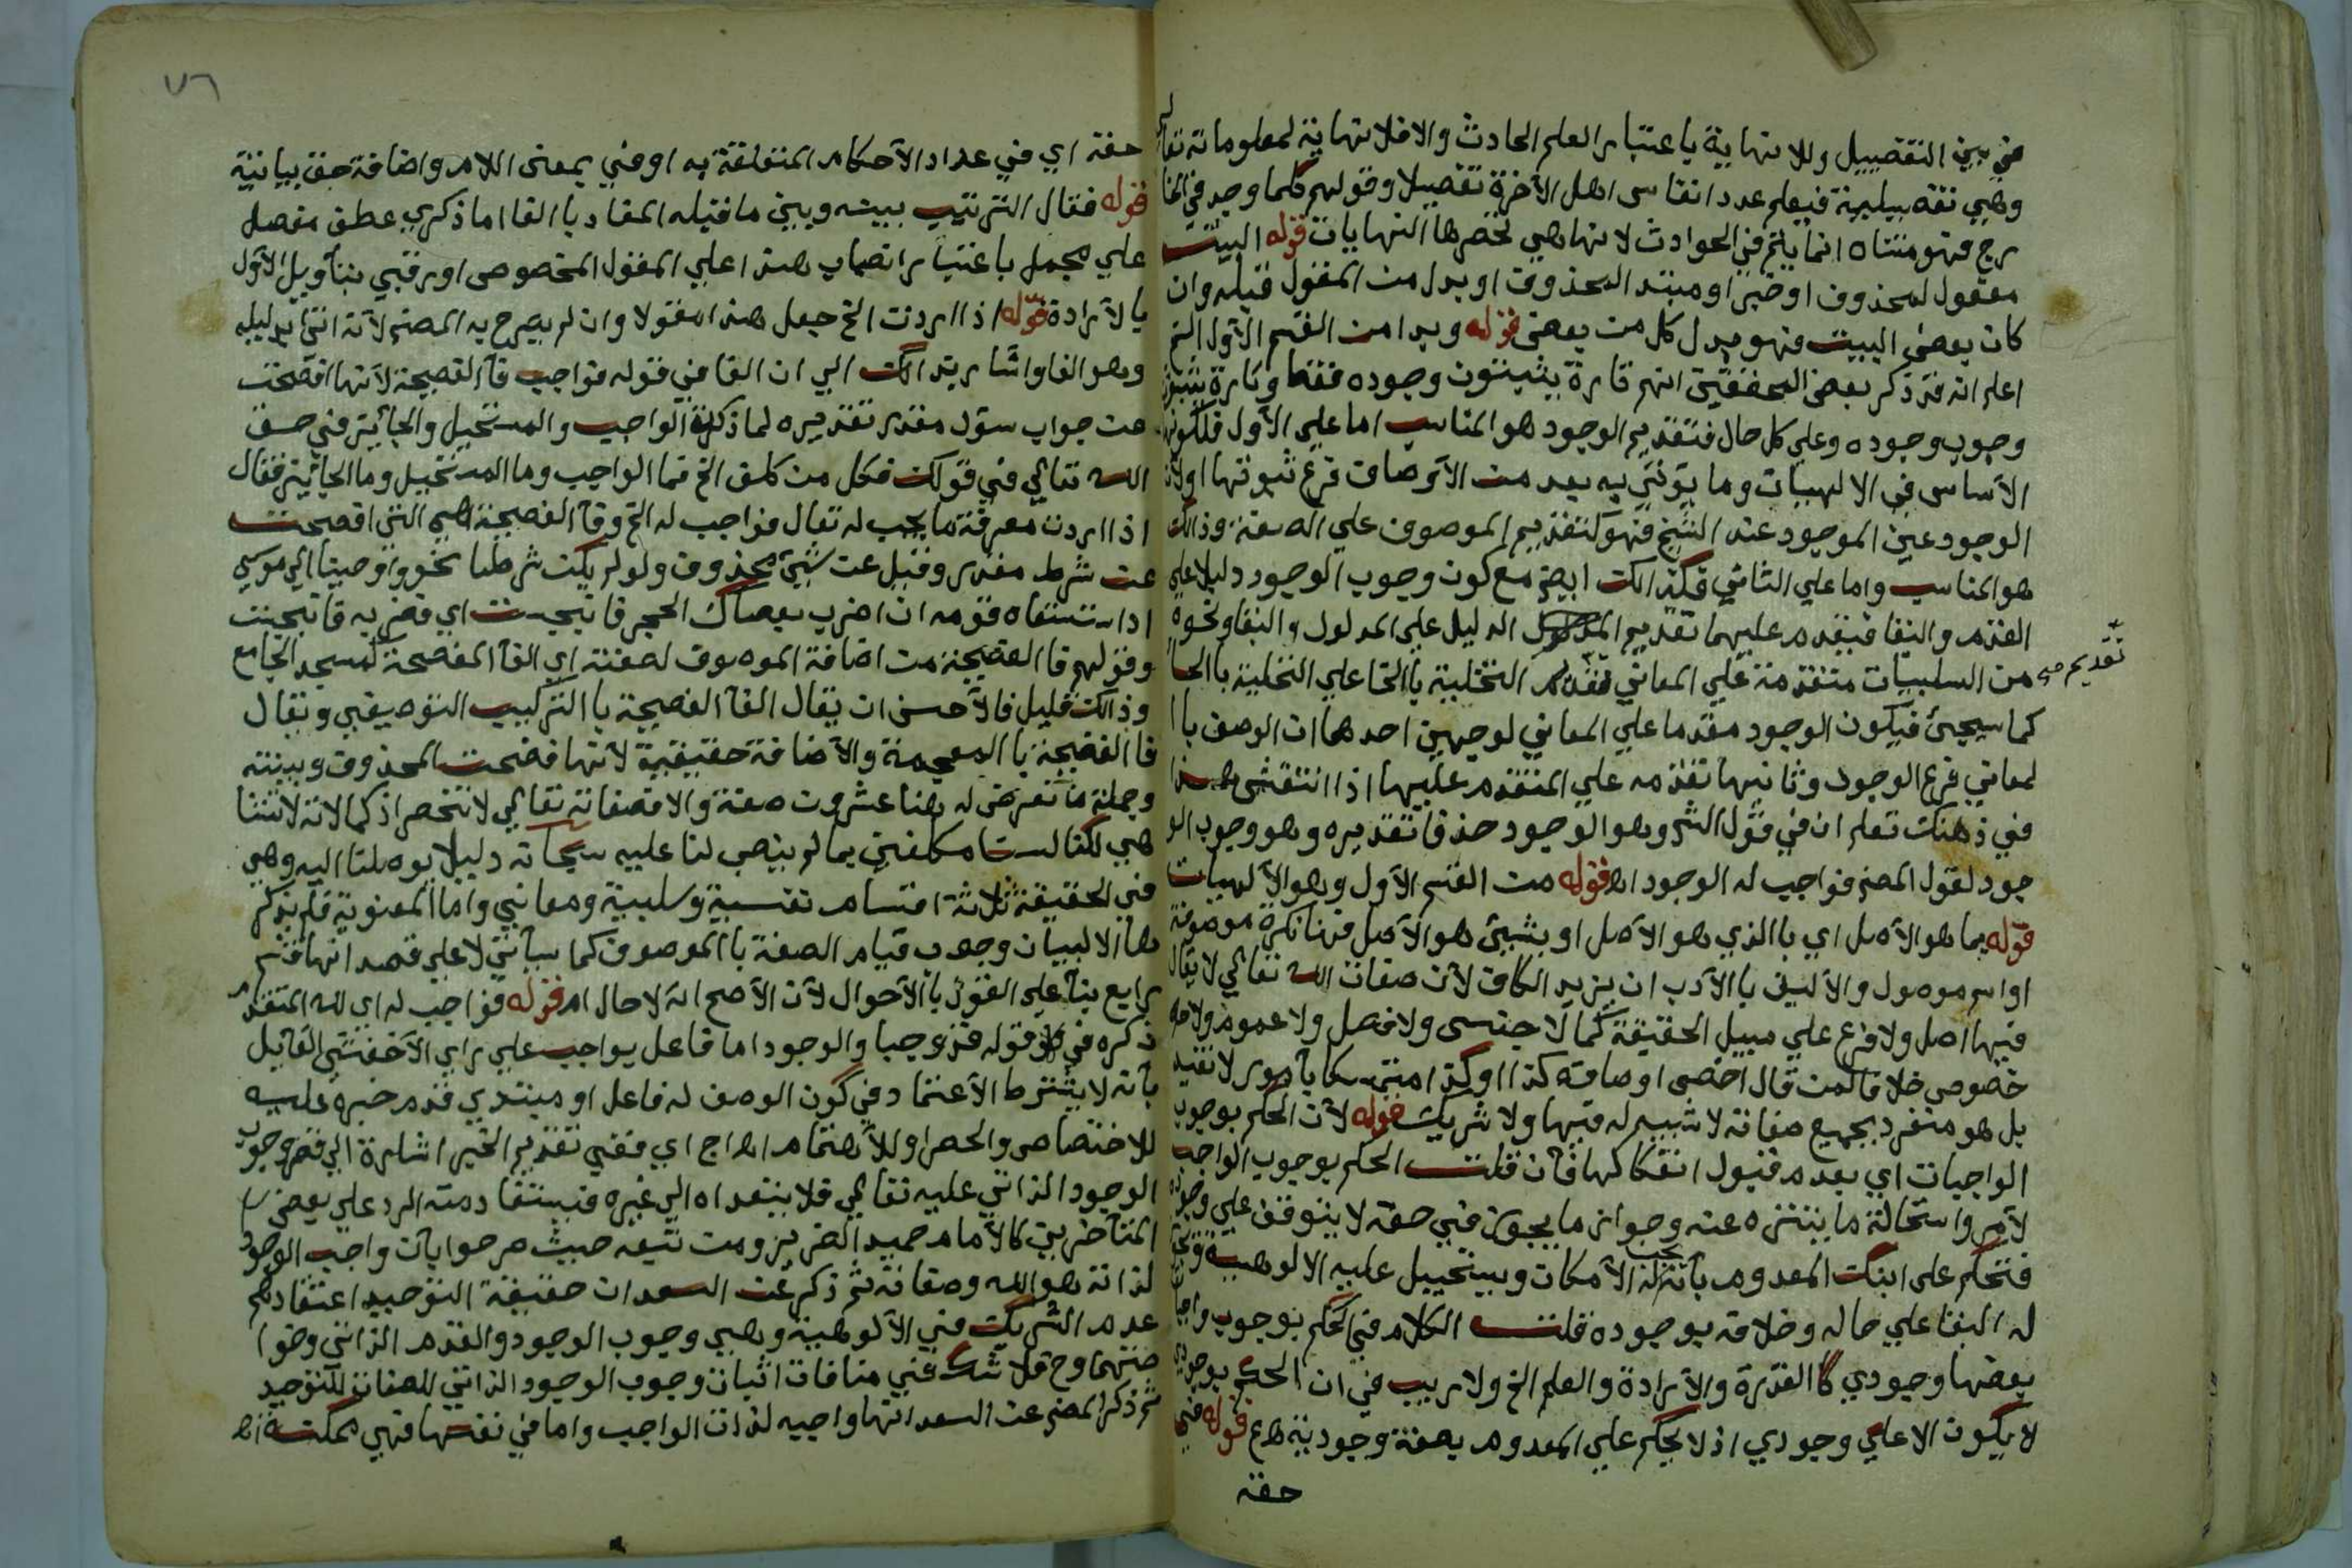 في بين التفصيل وللا نهاية باعتبار العلم الحادث والا فلا نهاية لمعلوماته تعالى
وهي تفصيلية فيعلم عدد انفاس اهل الآخرة تفصيلا وقولهم كلما وجد في الخا
رج فهو متناه انما يتم في الحوادث لانها هي تحصرها النهايات قوله البيت
مفعول لمحذوف او خبر او مبتدا المحذوف او بدل من المفعول قبله وان
كان بعض البيت فهو بدل كل من بعض قوله وبدا من القسم الاول الخ
اعلم انه قد ذكر بعض المحققين انهم تارة يثبتون وجوده فقط وتارة يثبتون
وجوب وجوده وعلى كل حال فتقديم الوجود هو المناسب اما على الأول فلكونه
الأساس في الالهيات وما يؤتى به بعد من الأوصاف فرع ثبوتها اولأن
الوجود عين الموجود عند الشيخ فهو كتقديم الموصوف على الصفة وذالك
هو المناسب واما على الثاني فكذالك ايضم مع كون وجوب الوجود دليلا على
القدم والبقا فيقدم عليهما تقديم الدليل على المدلول والبقا ونحوه
تقديم صح
من السلبيات متقدمة على المعاني تقدم التخلية باالخا على التحلية باالحا
كما سيجئ فيكون الوجود مقدما على المعاني لوجهين احدهما ان الوصف با ا
لمعاني فرع الوجود وثانيها تقدمه على المتقدم عليها اذا انتقش هذا
في ذهنك تعلم ان في قول الشم وهو الوجود حذفا تقديره وهو وجوب الو
جود لقول المصنم فواجب له الوجود اه قوله من القسم الأول وهو الآلهيات
قوله بما هو الأصل اي باالذي هو الاصل او بشيئ هو الأصل فما نكرة موصوفة
او اسم موصول والأليق باالأدب ان يزيد الكاف لأن صفات الله تعالى لا يقال
فيها اصل ولا فرع على سبيل الحقيقة كما لا جنس ولا فصل ولا عموم ولا
خصوص خلافا لمن قال اخص اوصافه كذا او كذا متمسكا بأمور لا تفيد
بل هو متفرد بجميع صفاته لا شبيه له فيها ولا شريك قوله لأن الحكم بوجوب
الواجبات اي بعدم قبول انفكاكها فأن قلت الحكم بوجوب الواجب
لأمر واستحالة ما يتنزه عنه وجواز ما يجوز في حقه لا يتوقف على وجوده
فتحكم على ابنك المعدوم بأنه يجب له الأمكان ويستحيل عليه الالوهية
له البقا على حاله وخلافه بوجوده قلت الكلام في الحكم بوجوب واجبا
بعضها وجودي كا القدرة والأرادة والعلم الخ ولا ريب في ان الحكم بوجودي
لا يكون الا على وجودي اذ لا يحكم على المعدوم بصفة وجودية قوله في
حقه
٧٦
حقه اي في عداد الأحكام المتعلقة به او في بمعنى اللام واضافة حق بيانية
قوله فقال الترتيب بينه وبين ما قبله المفاد باالفا اما ذكري عطف مفصل
على مجمل باعتبار انصباب هذا على المفول المخصوص او رتبي بتأويل الأول
با لأرادة قوله اذا اردت الخ جعل هذا مقولا وان لم يصرح به المصنم لأنه اتى بدليله
وهو الفا واشار بذالك الى ان الفا في قوله فواجب فآ الفصيحة لأنها افصحت
عن جواب سؤل مقدر تقديره لما ذكرة الواجب والمستحيل والجائز في حق
الله تعالى في قولك فكل من كلف الخ فما الواجب وما المستحيل وما الجائز فقال
اذا اردت معرفة ما يجب له تعال فواجب له الخ وفآ الفصيحة هي التى افصحت
عن شرط مقدر وقيل عن شيئ محذوف ولو لم يكن شرطا نحو واوحينا الى موسى
اذا ستسقاه قومه ان اضرب بعصاك الحجر فانبجست اي فضربه فانبجست
وقولهم فا الفصيحة من اضافة الموصوف لصفته اي الفآ المفصحة كمسجد الجامع
وذالك قليل فالأحسن ان يقال الفآ الفصيحة باالتركيب التوصيفي ويقال
فا الفضيحة باالمعجمة والأضافة حقيقية لأنها فضحت المحذوف وبينته
وجملة ما تعرض له هنا عشرون صفة والا فصفاته تعالى لا تنحصر اذ كمالاته لا تتنا
هي لكنا لسنا مكلفين بما لم ينصب لنا عليه سبحانه دليلا يوصلنا اليه وهي
في الحقيقة ثلاثة اقسام نفسية وسلبية ومعاني واما المعنوية فلم يذكر
ها الا لبيان وجوب قيام الصفة باالموصوف كما سيأتي لا على قصد انها قسم
رابع بنآ على القول باالأحوال لأن الأصح انه لا حال اه قوله فواجب له اي لله المتقدم
ذكره في قوله قد وجبا والوجود اما فاعل بواجب على راي الأخفش القآيل
بأنه لا يشترط الأعتماد في كون الوصف له فاعل او مبتدئ قدم خبره عليه
للاختصاص والحصر او للأهتمام اه اج اي ففي تقديم الخبر اشارة الى قصر وجوب
الوجود الذاتي عليه تعالى فلا يتعداه الى غيره فيستفاد منه الرد على بعض
المتأخرين كالأمام حميد الضرير ومن تبعه حيث صرحوا بأن واجب الوجود
لذاته هو الله وصفاته ثم ذكر عن السعد ان حقيقة التوحيد اعتقادهم
عدم الشريك في الألوهية وهي وجوب الوجود والقدم الذاتي وخوا
صتهما وح فلا شك في منافات اثبات وجوب الوجود الذاتي للصفات للتوحيد
ثم ذكر المصنم عن السعد انها واجبه لذات الواجب واما في نفسها فهي ممكنة اه